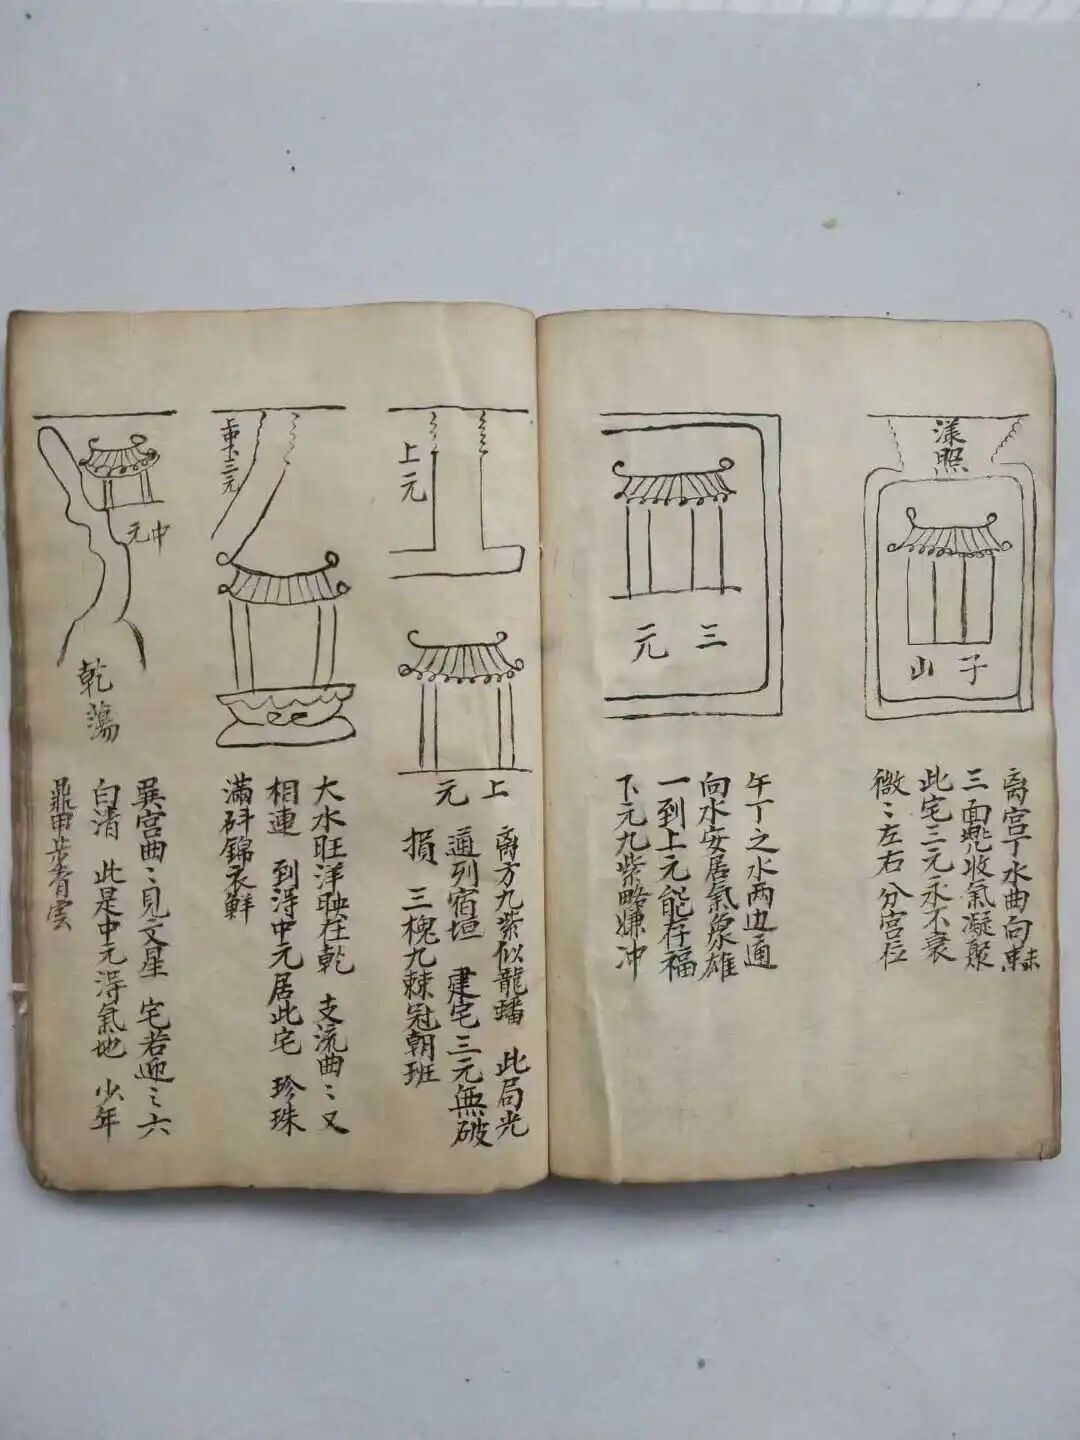 漾照
子山
离宫丁水曲向
三面兜收氣凝聚
此宅三元永不衰
微〻左右分宫位
三元
午丁之水两边通
向水安居氣象雄
一到上元能存福
下元九紫略嫌冲
上元
上元
离方九紫似龍蟠 此局光
通列宿垣 建宅三元無破
損 三槐九棘冠朝班
大水旺洋映在乾 支流曲〻又
相連 到淂中元居此宅 珍珠
滿斛錦衣鮮
中元
乾蕩
巽宫曲〻見文星 宅若迎〻六
白清 此是中元淂氣地 少年
鼎甲步青雲